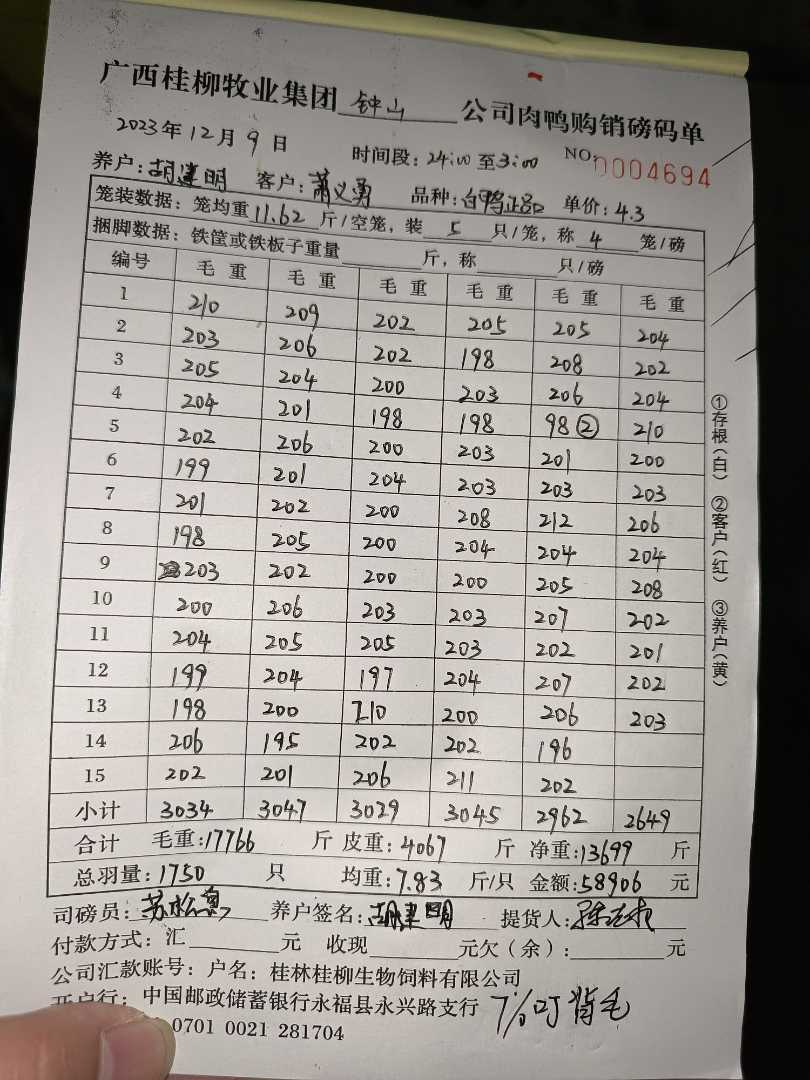 广西桂柳牧业集团 钟山 公司肉鸭购销磅码单
2023年12月9日 时间段：24:00至3:00 NO:0004694
养户：胡建明 客户：萧义勇 品种：白鸭正品 单价：4.3
笼装数据：笼均重11.62斤/空笼，装5只/笼，称4笼/磅
捆脚数据：铁筐或铁板子重量 斤，称 只/磅
编号 毛重 毛重 毛重 毛重 毛重 毛重
1 210 209 202 205 205 204
2 203 206 202 198 208 202
3 205 204 200 203 206 204
4 204 201 198 198 98② 210
5 202 206 200 203 201 200
6 199 201 204 203 203 203
7 201 202 200 208 212 206
8 198 205 200 204 204 204
9 203 202 200 200 205 208
10 200 206 203 203 207 202
11 204 205 205 203 202 201
12 199 204 197 204 207 202
13 198 200 210 200 206 203
14 206 195 202 202 196
15 202 201 206 211 202
小计 3034 3047 3029 3045 2962 2649
合计 毛重：17766斤 皮重：4067斤 净重：13699斤
总羽量：1750只 均重：7.83斤/只 金额：58906元
司磅员： 养户签名：胡建明 提货人：
付款方式：汇 元 收现 元欠（余）： 元
公司汇款账号：户名：桂林桂柳生物饲料有限公司
开户行：中国邮政储蓄银行永福县永兴路支行
0701 0021 281704
7%叮 背毛
①存根（白） ②客户（红） ③养户（黄）